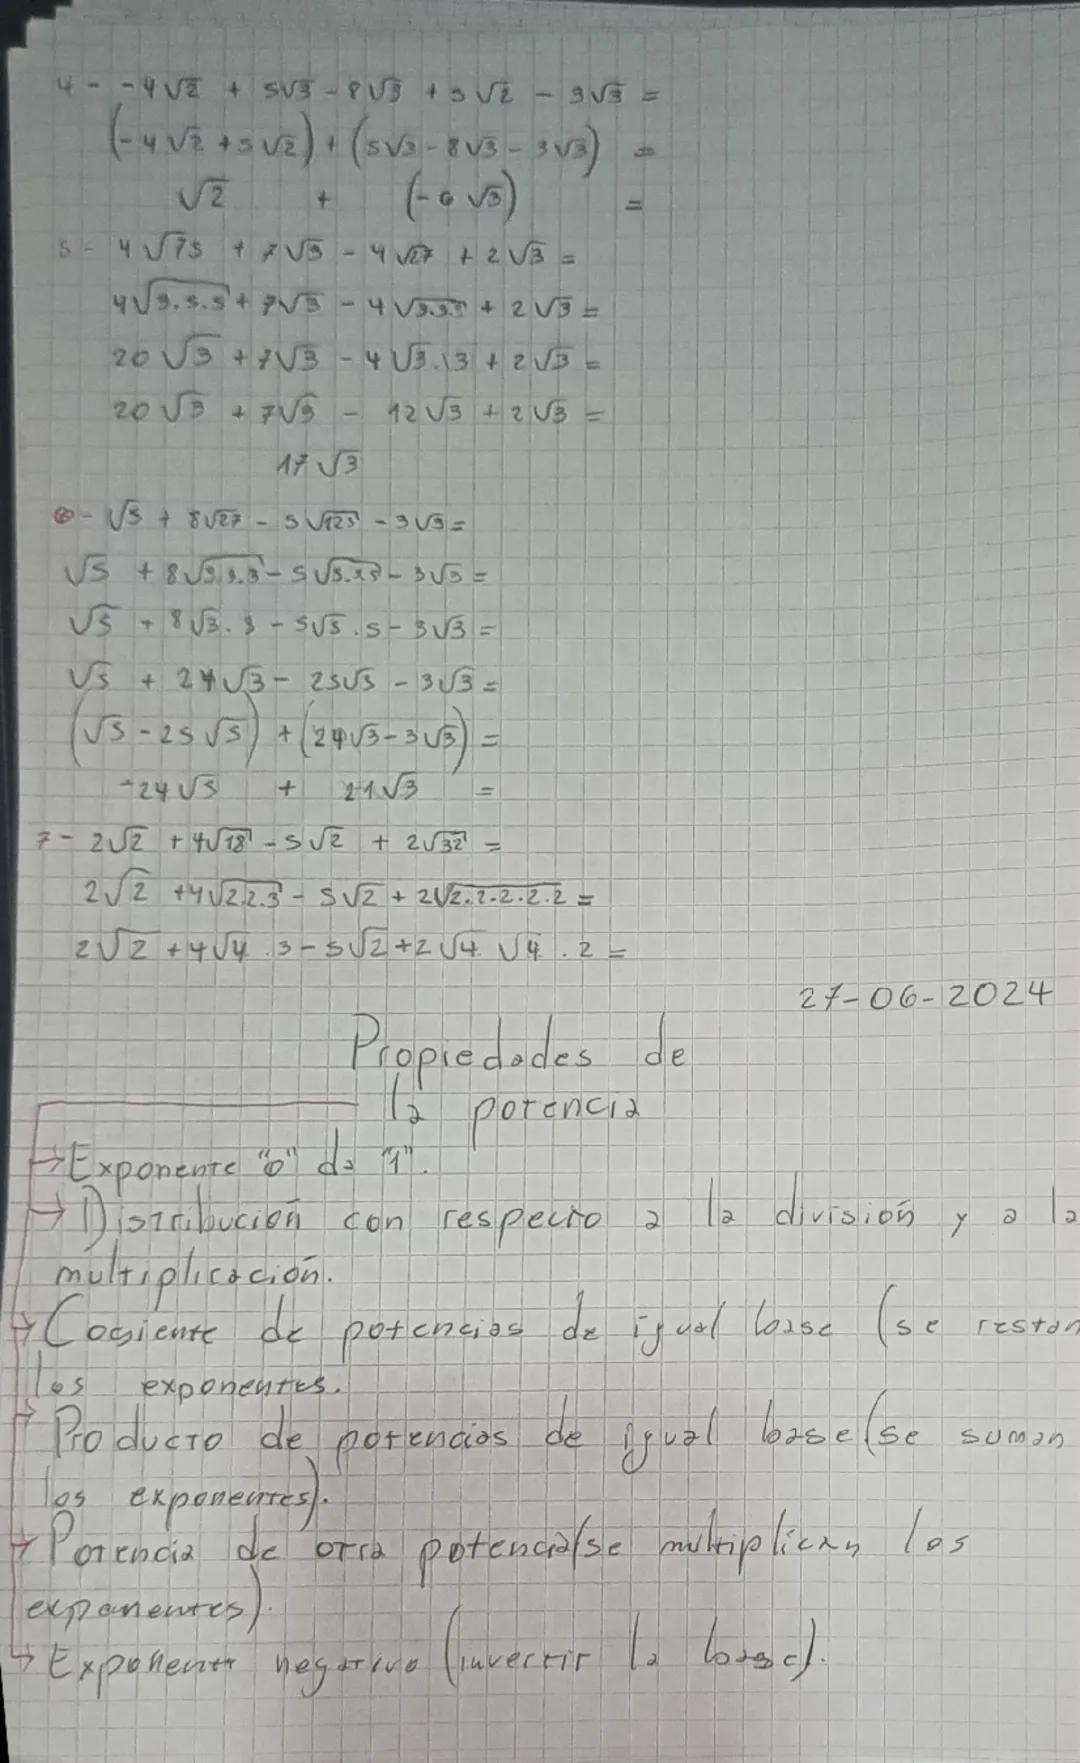 4 - -4√2 + 5√3 - 8√3 + 5√2 - 3√3 =
(-4√2 + 5√2) + (5√3 - 8√3 - 3√3) =
√2 + (-6√3) =
5 - 4√75 + 7√3 - 4√27 + 2√3 =
4√3.5.5 + 7√3 - 4√3.3.3 + 2√3 =
20√3 + 7√3 - 4√3.13 + 2√3 =
20√3 + 7√3 - 12√3 + 2√3 =
17√3
6 - √5 + 8√27 - 5√125 - 3√3 =
√5 + 8√3.3.3 - 5√5.5.5 - 3√3 =
√5 + 8√3.3 - 5√5.5 - 3√3 =
√5 + 24√3 - 25√5 - 3√3 =
(√5 - 25√5) + (24√3 - 3√3) =
-24√5 + 21√3 =
7 - 2√2 + 4√18 - 5√2 + 2√32 =
2√2 + 4√2.2.3 - 5√2 + 2√2.2.2.2.2 =
2√2 + 4√4.3 - 5√2 + 2√4.√4.2 =
27-06-2024
Propiedades de
la potencia
→Exponente "0" da "1".
→Distribución con respecto a la división y a la
multiplicación.
→Cosiente de potencias de igual base (se restan
los exponentes.
→Producto de potencias de igual base (se suman
los exponentes).
→Potencia de otra potencia (se multiplican los
exponentes).
→Exponente negativo (invertir la base).